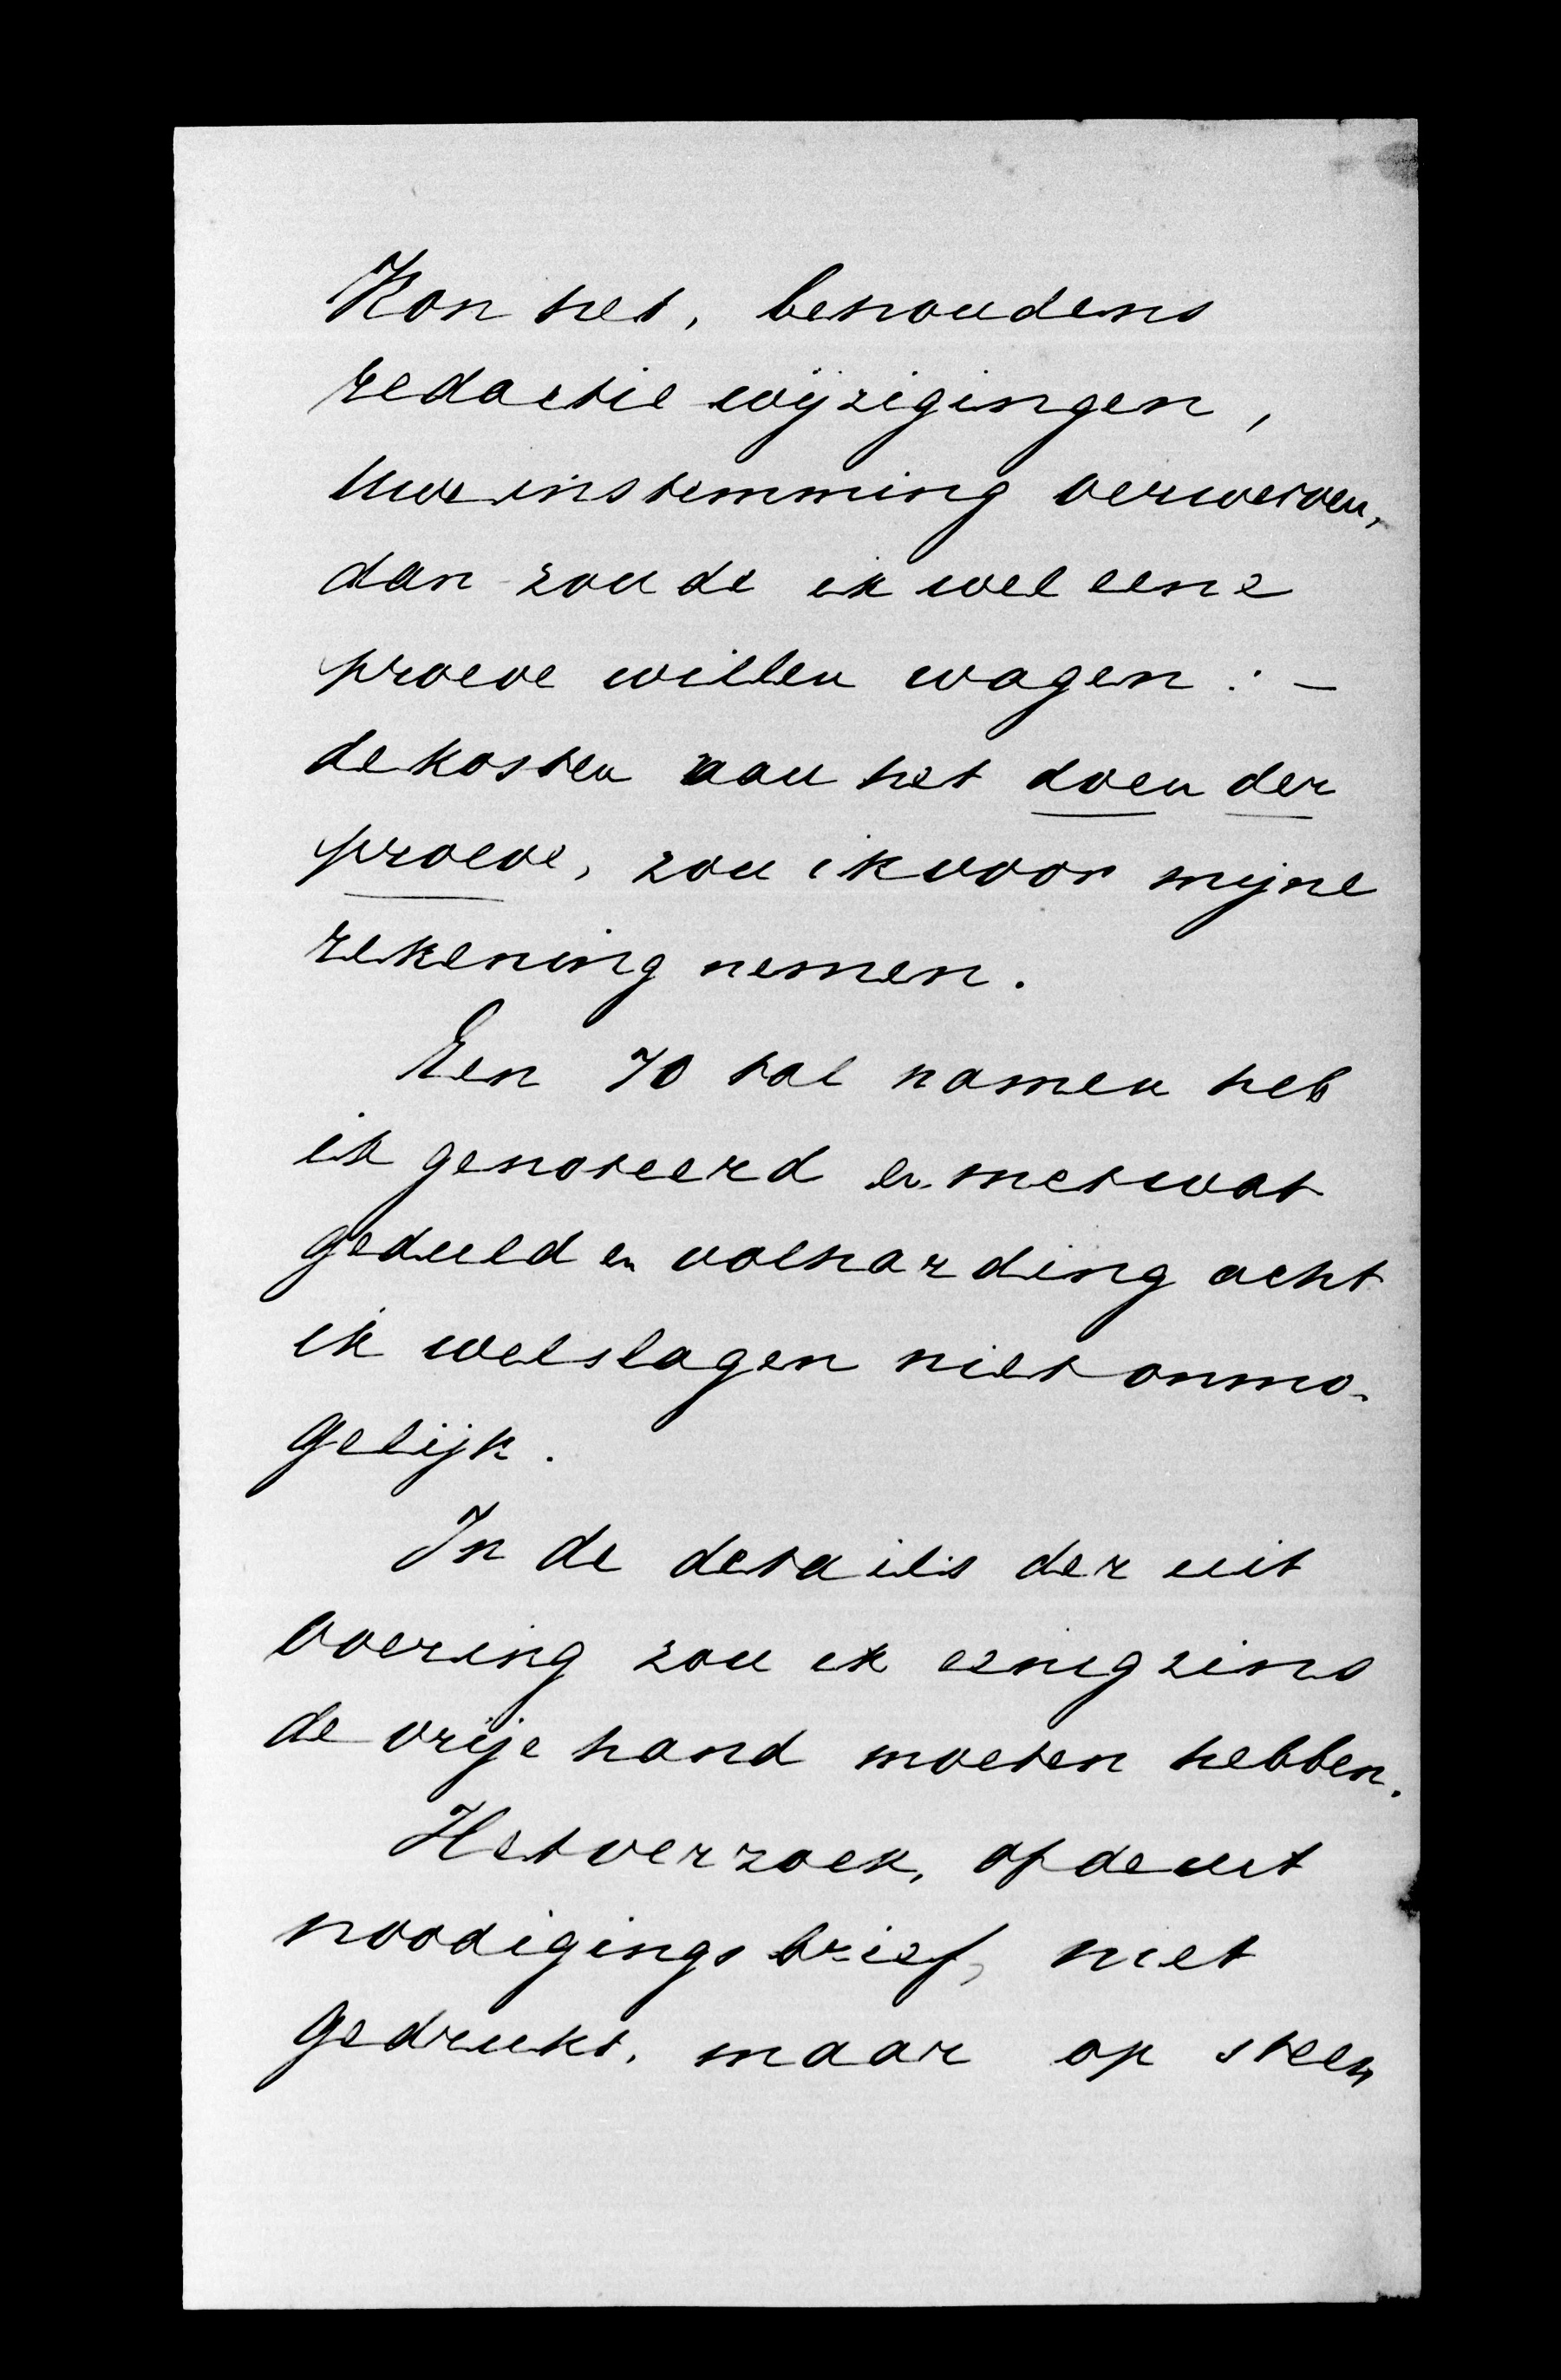 Kon het, behoudens
redactie wijzigingen,
Uwe instemming verwerven,
dan zoude ik wel eene
proeve willen wagen: –
de kosten aan het doen der
proeve, zou ik voor mijne
rekening nemen.
Een 70 tal namen heb
ik genoteerd en met wat
geduld en volharding acht
ik welslagen niet onmo-
gelijk.
In de details der uit
voering zou ik eenigzins
de vrije hand moeten hebben.
Het verzoek, of de uit
noodigings brief, niet
gedrukt, maar op steen